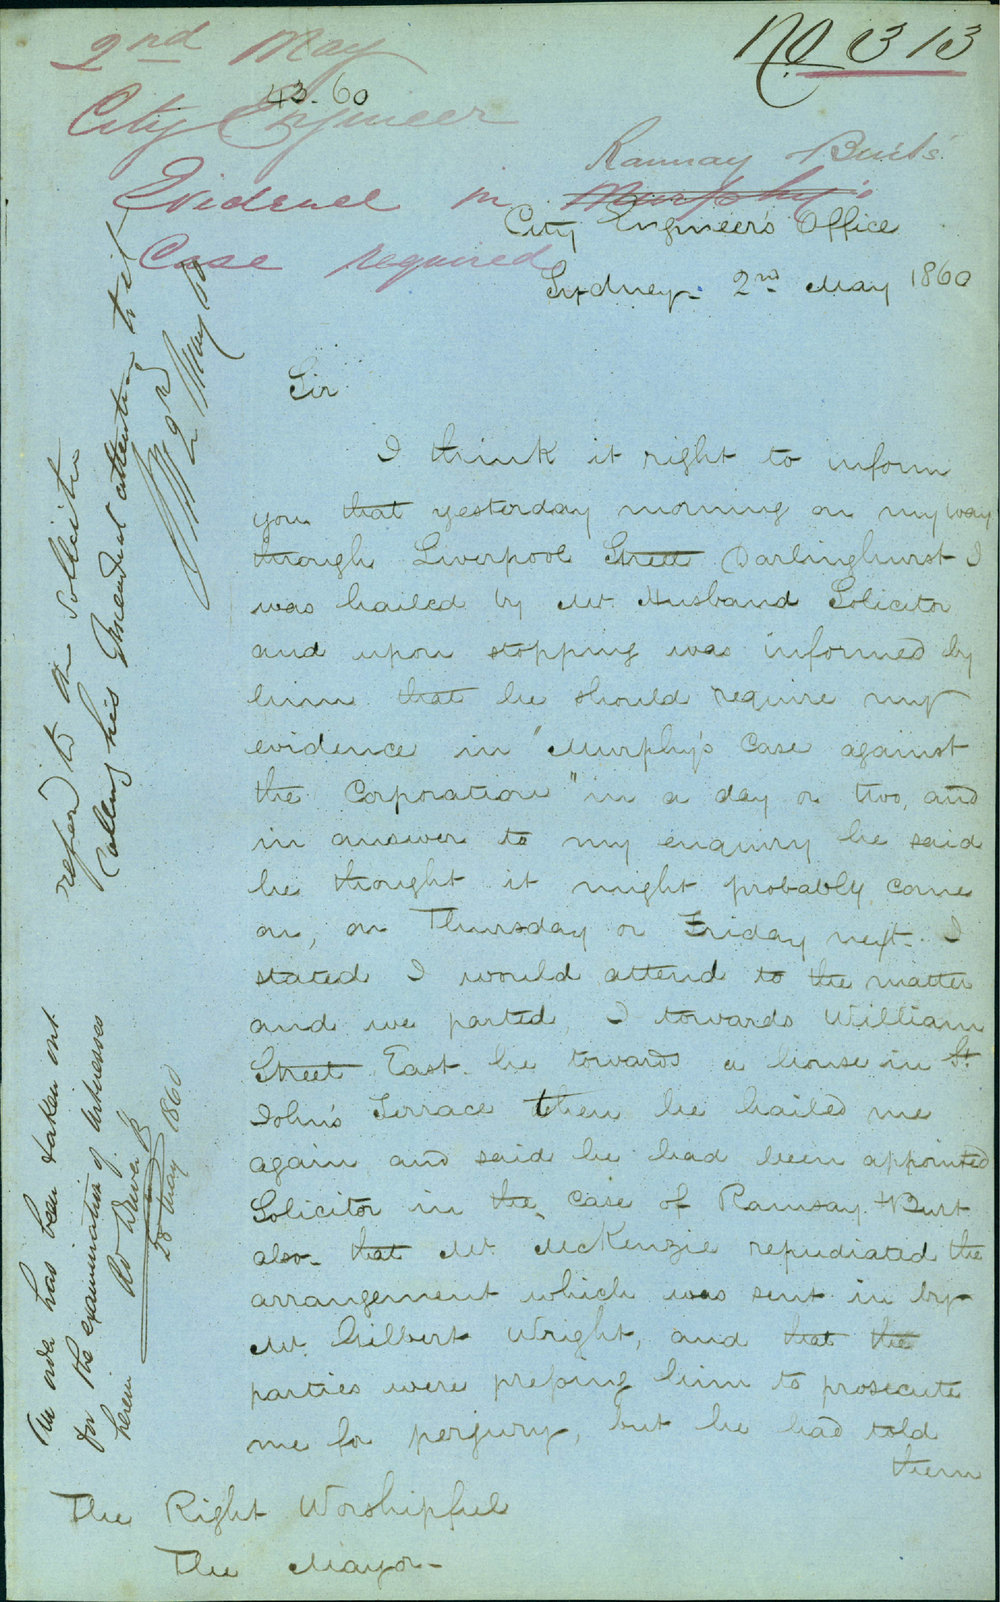 No 313
2nd May
43.60
City Engineer
Ramsay & Burt's
Evidence in Murphy's
Case required
City Engineer's Office
Sydney 2nd May 1860
Sir
I think it right to inform
you that yesterday morning on my way
through Liverpool Street Darlinghurst I
was hailed by Mr. Husband Solicitor
and upon stopping was informed by
him that he should require my
evidence in "Murphy's Case against
the Corporation" in a day or two, and
in answer to my enquiry he said
he thought it might probably come
on, on Thursday or Friday next. I
stated I would attend to the matter
and we parted, I towards William
Street East he towards a house in St.
John's Terrace then he hailed me
again and said he had been appointed
Solicitor in the case of Ramsay & Burt
also that Mr. McKenzie repudiated the
arrangement which was sent in by
Mr. Gilbert Wright, and that the
parties were pressing him to prosecute
me for perjury, but he had told
them
The Right Worshipful
The Mayor
refer'd to the Solicitor
Calling his immediate attention to it
2nd May 60
The order has been taken out
for the examination of witnesses
herein
28 May 1860